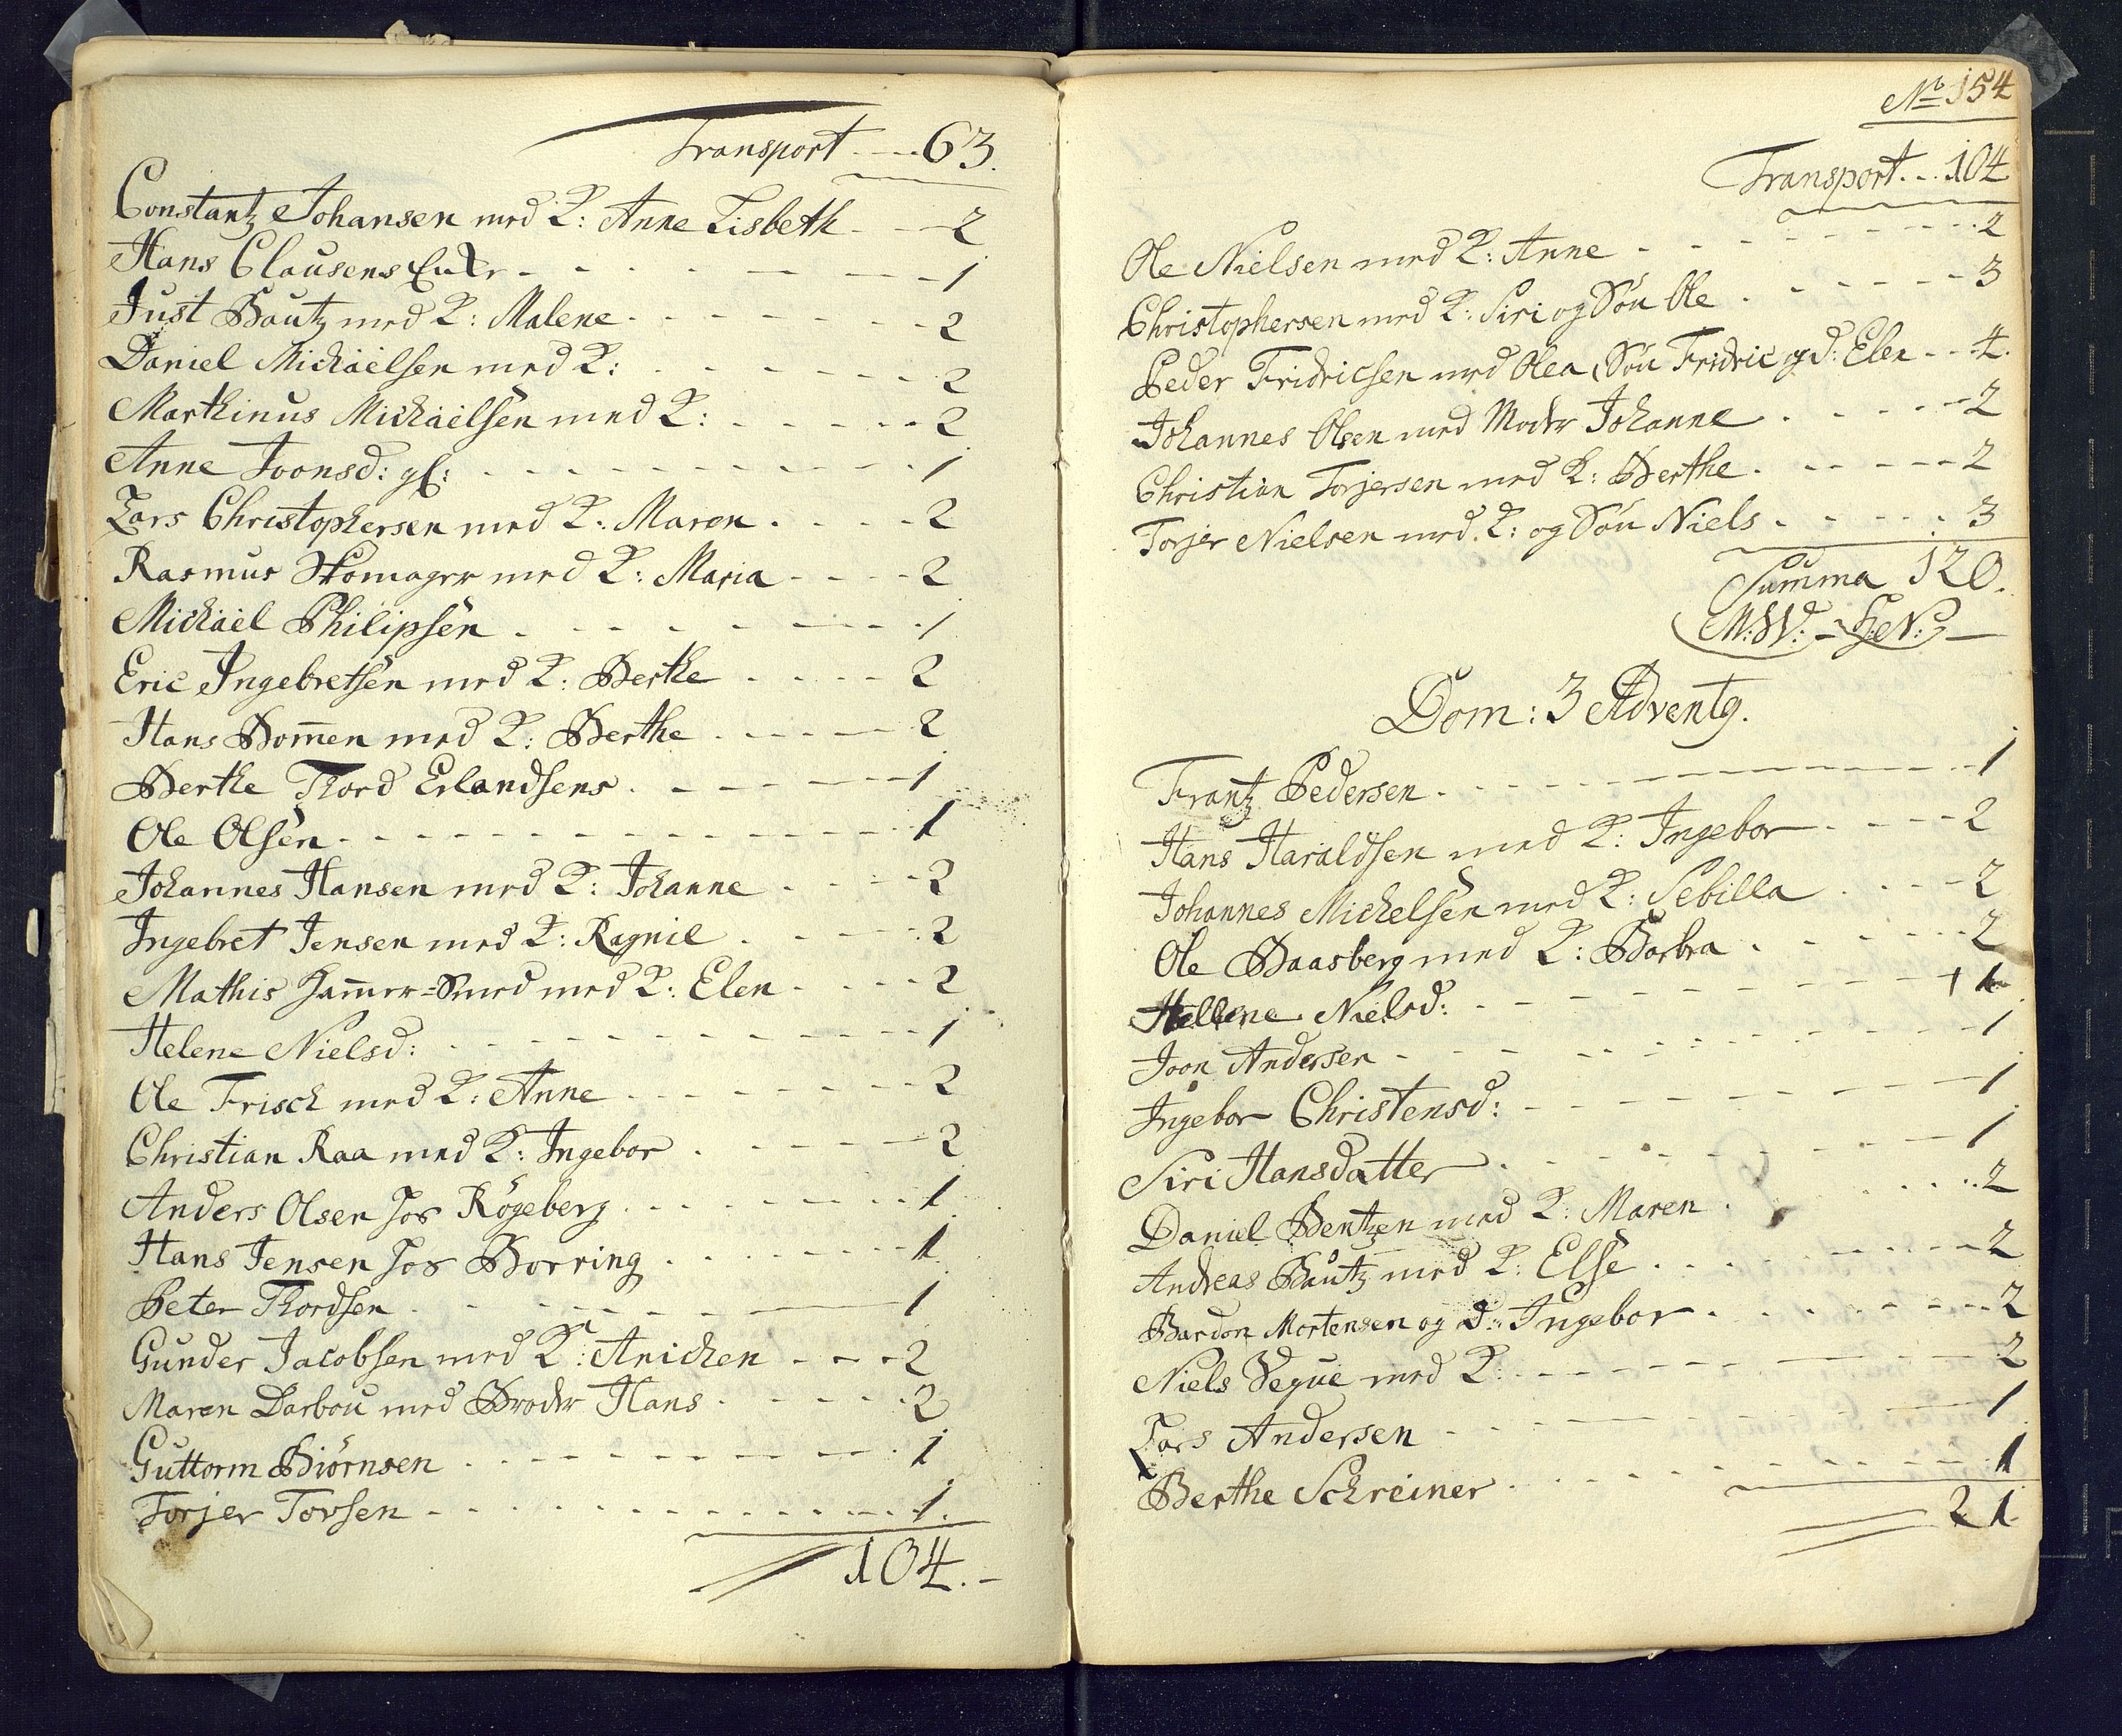 Transport - - - 63.
Constantz Johansen med K: Anne Lisbeth - - - 2
Hans Clausens Enke - - - 1
Just Bautz med K: Malene - - - 2
Daniel Michaelsen med K: - - - 2
Marthinus Michaelsen med K: - - - 2
Anne Joonsd: gl: - - - 1
Lars Christophersen med K: Maren - - - 2
Rasmus Skomager med K: Maria - - - 2
Michael Philipsen - - - 1
Eric Ingebretsen med K: Berthe - - - 2
Hans Bom̅en med K: Berthe - - - 2
Berthe Thord Erlandsens - - - 1
Ole Olsen - - - 1
Johannes Hansen med K: Johanne - - - 2
Ingebret Jensen med K: Ragnil - - - 2
Mathis Ham̅er=Smed med K: Elen - - - 2
Helene Nielsd: - - - 1
Ole Frisch med K: Anne - - - 2
Christian Raa med K: Ingebor - - - 2
Anders Olsen hos Rögeberg - - - 1
Hans Jensen hos Borring - - - 1
Peter Thordsen - - - 1
Gunder Jacobsen med K: Anichen - - - 2
Maren Darbou med Broder Hans - - - 2
Guttorm Biörnsen - - - 1
Torjer Torsen - - - 1.
104. -
No 154
Transport - - - 104
Ole Nielsen med K: Anne - - - 2
Christophersen med K: Siri og Sön Ole - - - 3
Peder Fridricsen med Olea, Sön Fridric og d: Elen - - - 4.
Johannes Olsen med Moder Johanne - - - 2
Christian Torjersen med K: Berthe - - - 2
Torjer Nielsen med K: og Sön Niels - - - 3
Summa 120.
M:W: - H:N: -
Dom: 3 Advent9.
Frantz Pedersen - - - 1
Hans Haraldsen med K: Ingebor - - - 2
Johannes Michelsen med K: Sebilla - - - 2
Ole Baasberg med K: Barbra - - - 2
Hellene Nielsd: - - - 1
Joon Andersen - - - 1
Ingebor Christensd: - - - 1
Siri Hansdatter - - - 1
Daniel Bentzen med K: Maren - - - 2
Andreas Bautz med K: Else - - - 2
Bardon Mortensen og d: Ingebor - - - 2
Niels Segue med K: - - - 2
Lars Andersen - - - 1
Berthe Schreiner - - - 1
21